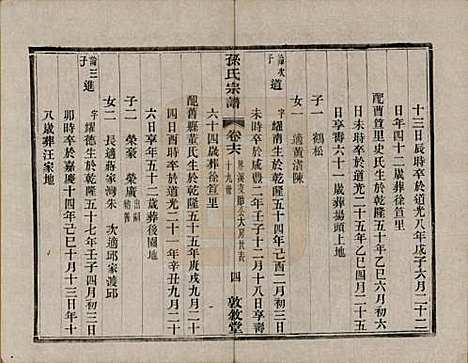 十三日辰時卒於道光八年戊子六月二十二
日年四十二歲葬徐笪里
配曹笪里史氏生於乾隆五十五年四月初六
日卒於道光二十五年乙巳五月二十二
日享壽六十一歲葬揚頭上地
子一 鶴松
女一 適黃渚陳
論次道
字耀南生於乾隆五十四年己酉二月初三日
未時卒於咸豐二年壬子十二月十八日享壽
孫氏宗譜
卷十六
十九世
四
敦敘堂
六十四歲葬徐笪里
配舊縣董氏生於乾隆五十五年庚戌九月二十
四日酉時卒於道光二十一年辛丑九月二十
六日享年五十二歲葬後園地
子二 榮豪 榮廣
女二 長適蔣家灣朱 次適邱家渡邱
論三進
字耀德生於乾隆五十七年壬子四月初三日
卯時卒於嘉慶十四年己巳十月十三日年十
八歲葬汪家地